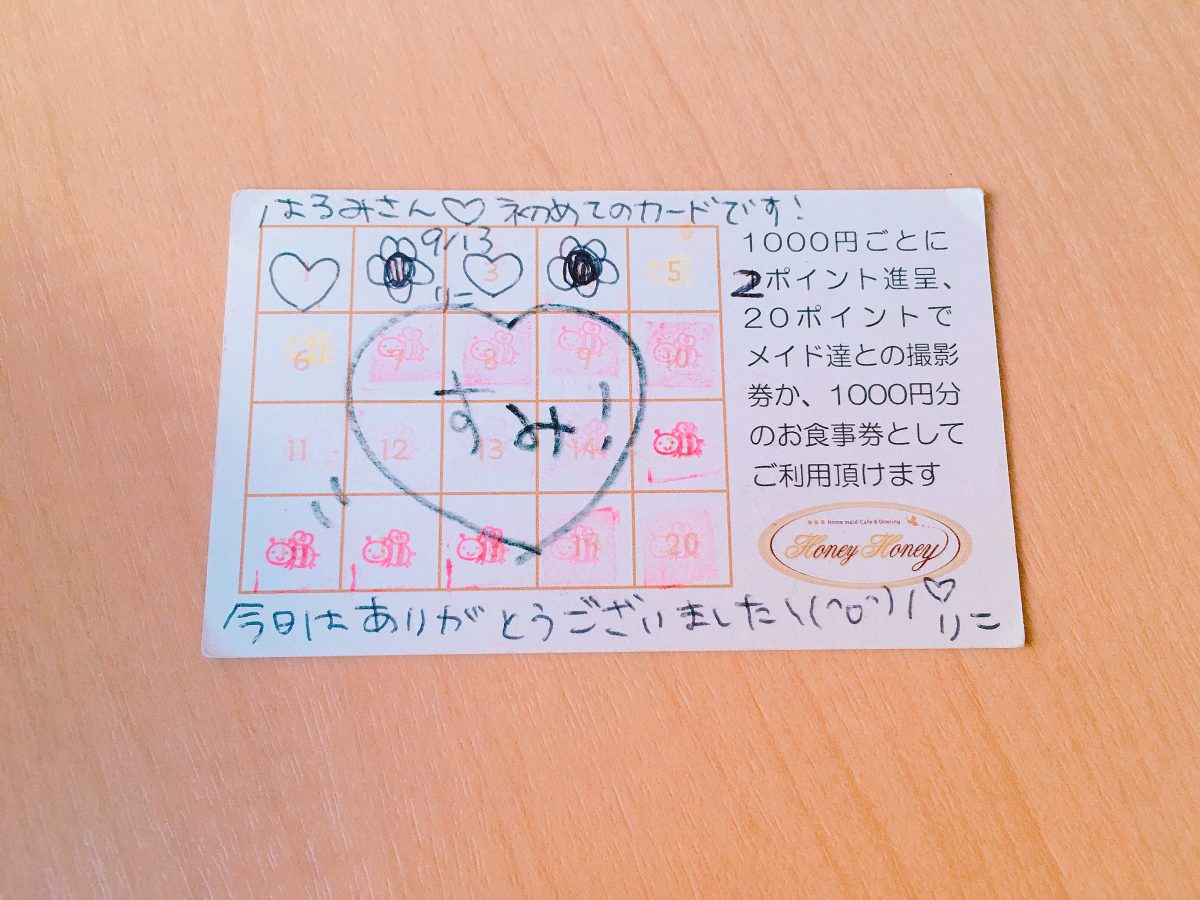 はるみさん♡初めてのカードです!
9/13
1
3
5
リニ
6
7
8
9
10
すみ!
11
12
13
14
19
20
今日はありがとうございました\(^o^)/♡
リニ
1000円ごとに
2ポイント進呈、
20ポイントで
メイド達との撮影
券か、1000円分
のお食事券として
ご利用頂けます
Home maid Cafe & Dineing
Honey Honey